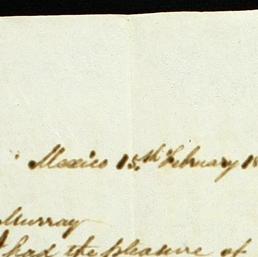 Mexico 15th February 18
Murray
I had the pleasure of